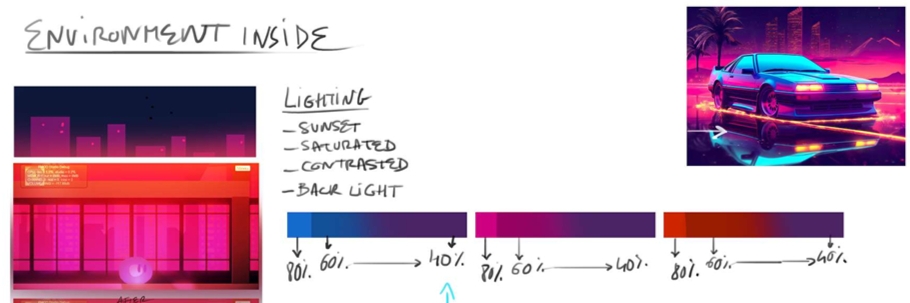 ENVIRONMENT INSIDE
LIGHTING
- SUNSET
- SATURATED
- CONTRASTED
- BACK LIGHT
80% 60% 40%
80% 60% 40%
80% 60% 40%
AFTER